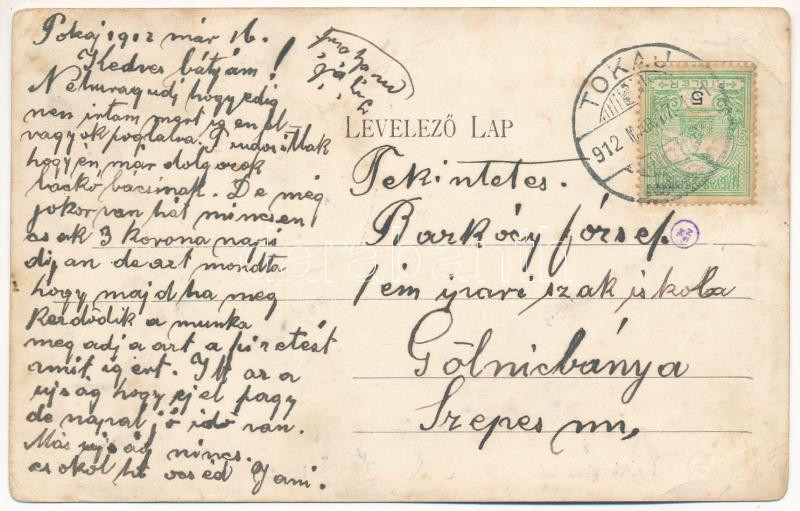 Tokaj 1912 már 16.
Kedves bátyám!
Neharagudj hogy edig
nem irtam mert igen el
vagyok foglalva. Tudosittlak
hogy én már dolgozok
backó bácsinak. De még
jokor van hát nincsen
csak 3 korona napi
dijan de azt mondta
hogy majd ha meg
kezdödik a munka
meg adja azt a fizetést
mit igért. Itt az a
ujság hogy éjel fagy
de napal jó idö van.
Más ujság nincs.
csokol hü öcséd Jani.
LEVELEZŐ LAP
TOKAJ
912 MÁR
5
FILLÉR
Tekintetes.
Barkóczy József
fém ipari szak iskola
Gölnicbánya
Szepes m,
darabanth